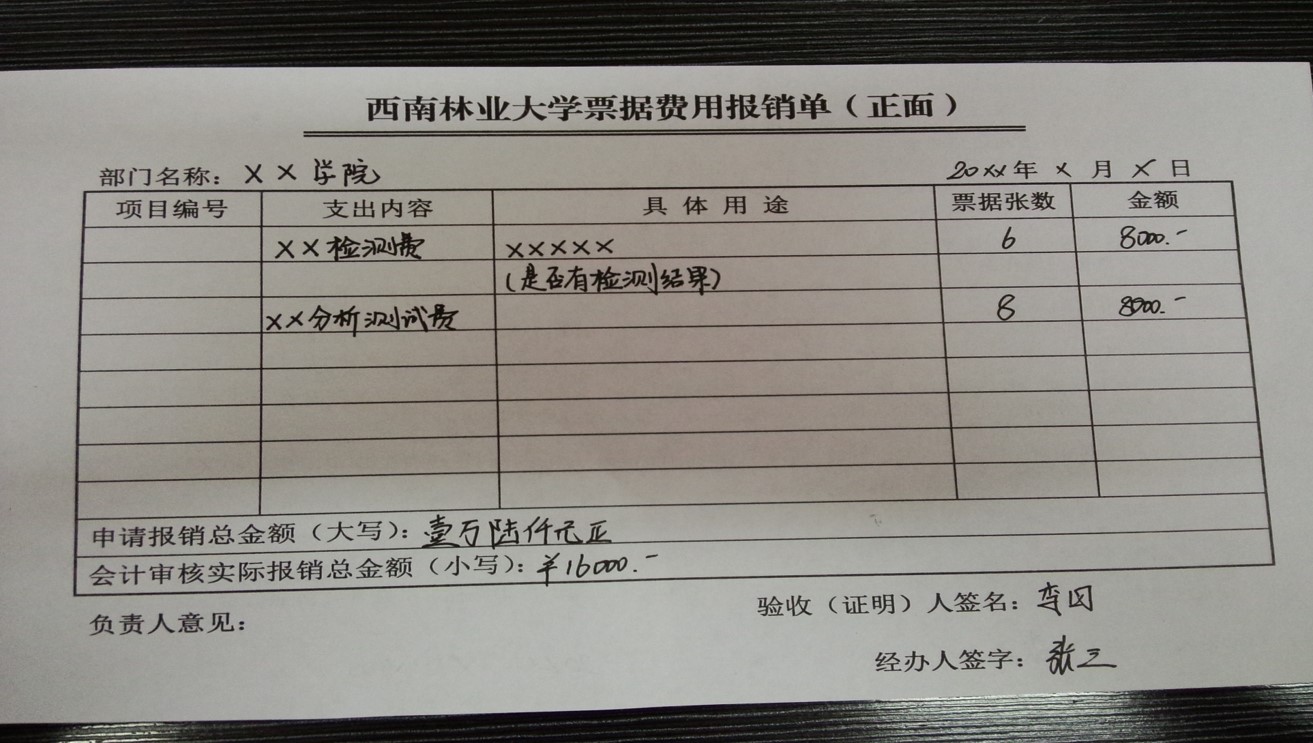 西南林业大学票据费用报销单（正面）
部门名称：××学院 20××年×月×日
项目编号 支出内容 具体用途 票据张数 金额
××检测费 ××××× 6 8000.-
(是否有检测结果)
××分析测试费 8 8000.-
申请报销总金额（大写）：壹万陆仟元正
会计审核实际报销总金额（小写）：￥16000.-
负责人意见：
验收（证明）人签名：李四
经办人签字：张三